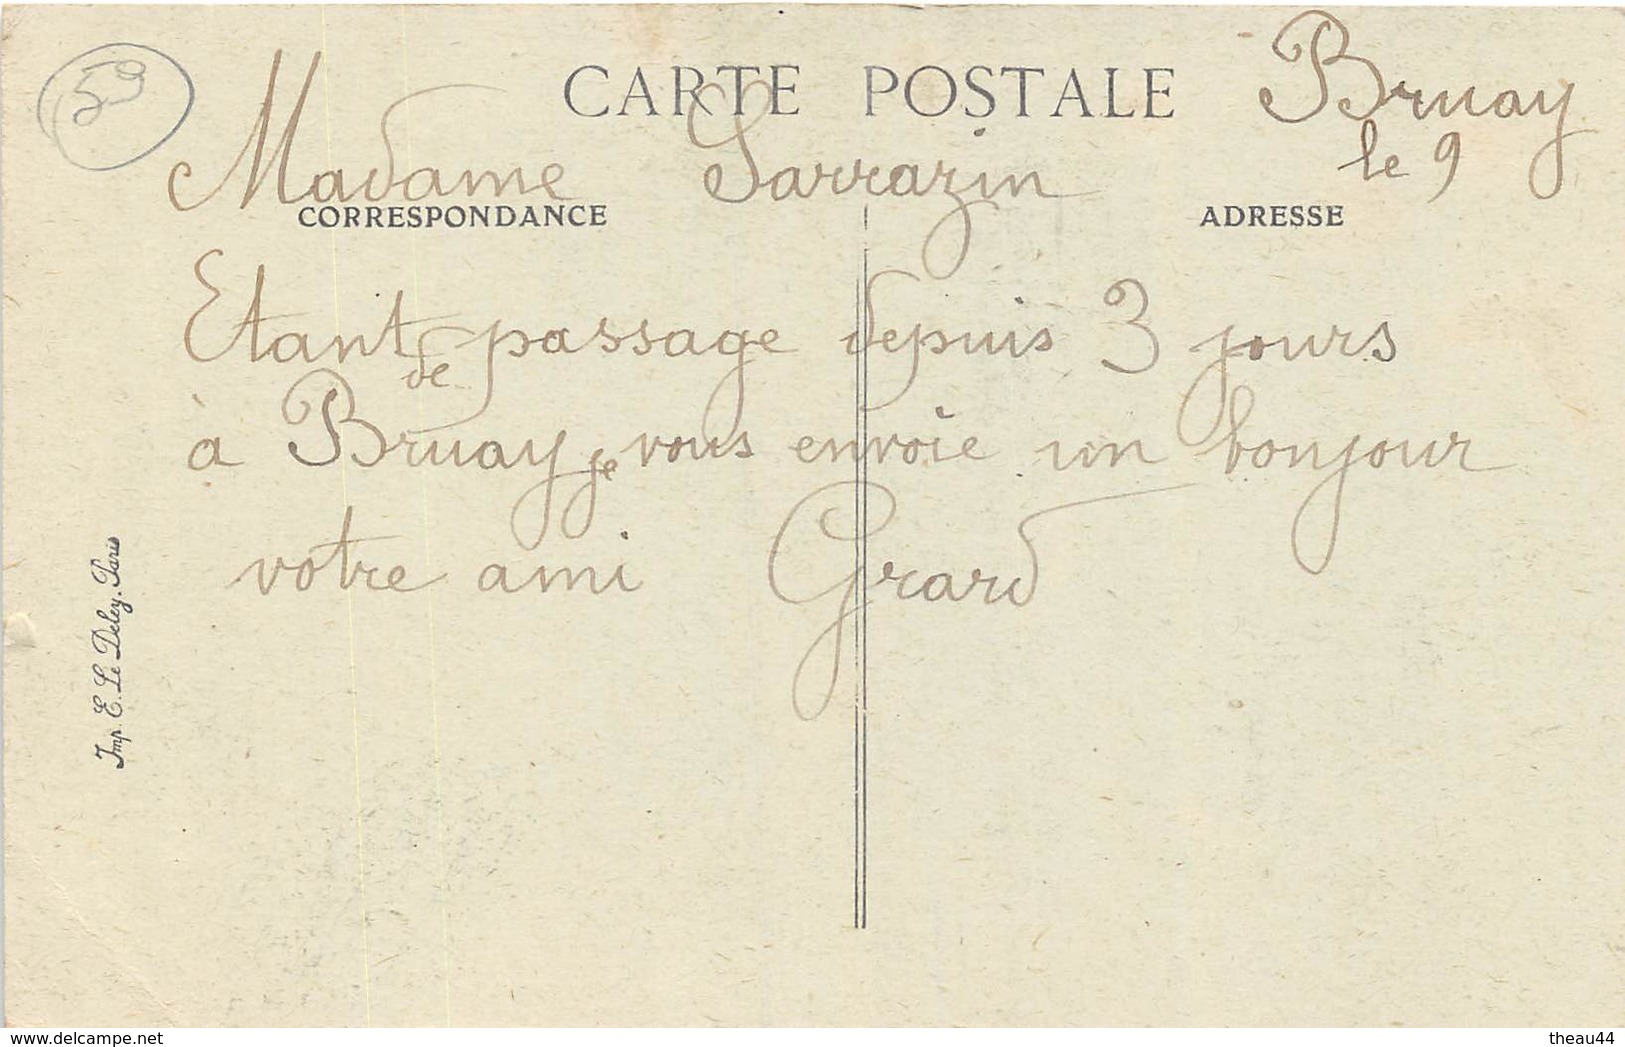 59
CARTE POSTALE
Bruay
le 9
Madame Sarrazin
CORRESPONDANCE
ADRESSE
Etant de passage depuis 3 jours
à Bruay je vous envoie un bonjour
votre ami Grard
Imp. E. Le Deley, Paris
www.delcampe.net
theau44